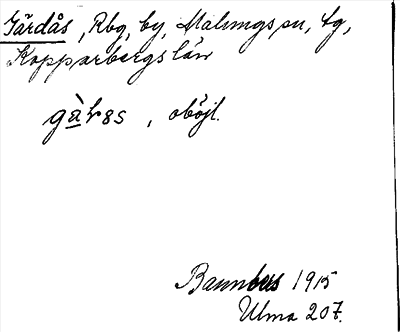 Järdås, Rbg, by, Malungs sn, tg,
Kopparbergs län
gàɽ8s, oböjl.
Bannbers 1915
Ulma 207.